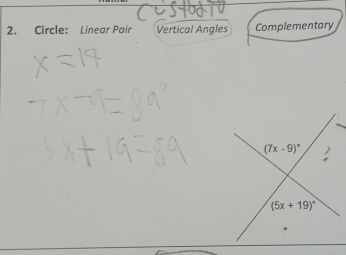 2. Circle: Linear Pair Vertical Angles Complementary
x = 14
7x - 9 = 89°
5x + 19 = 89
(7x - 9)°
(5x + 19)°